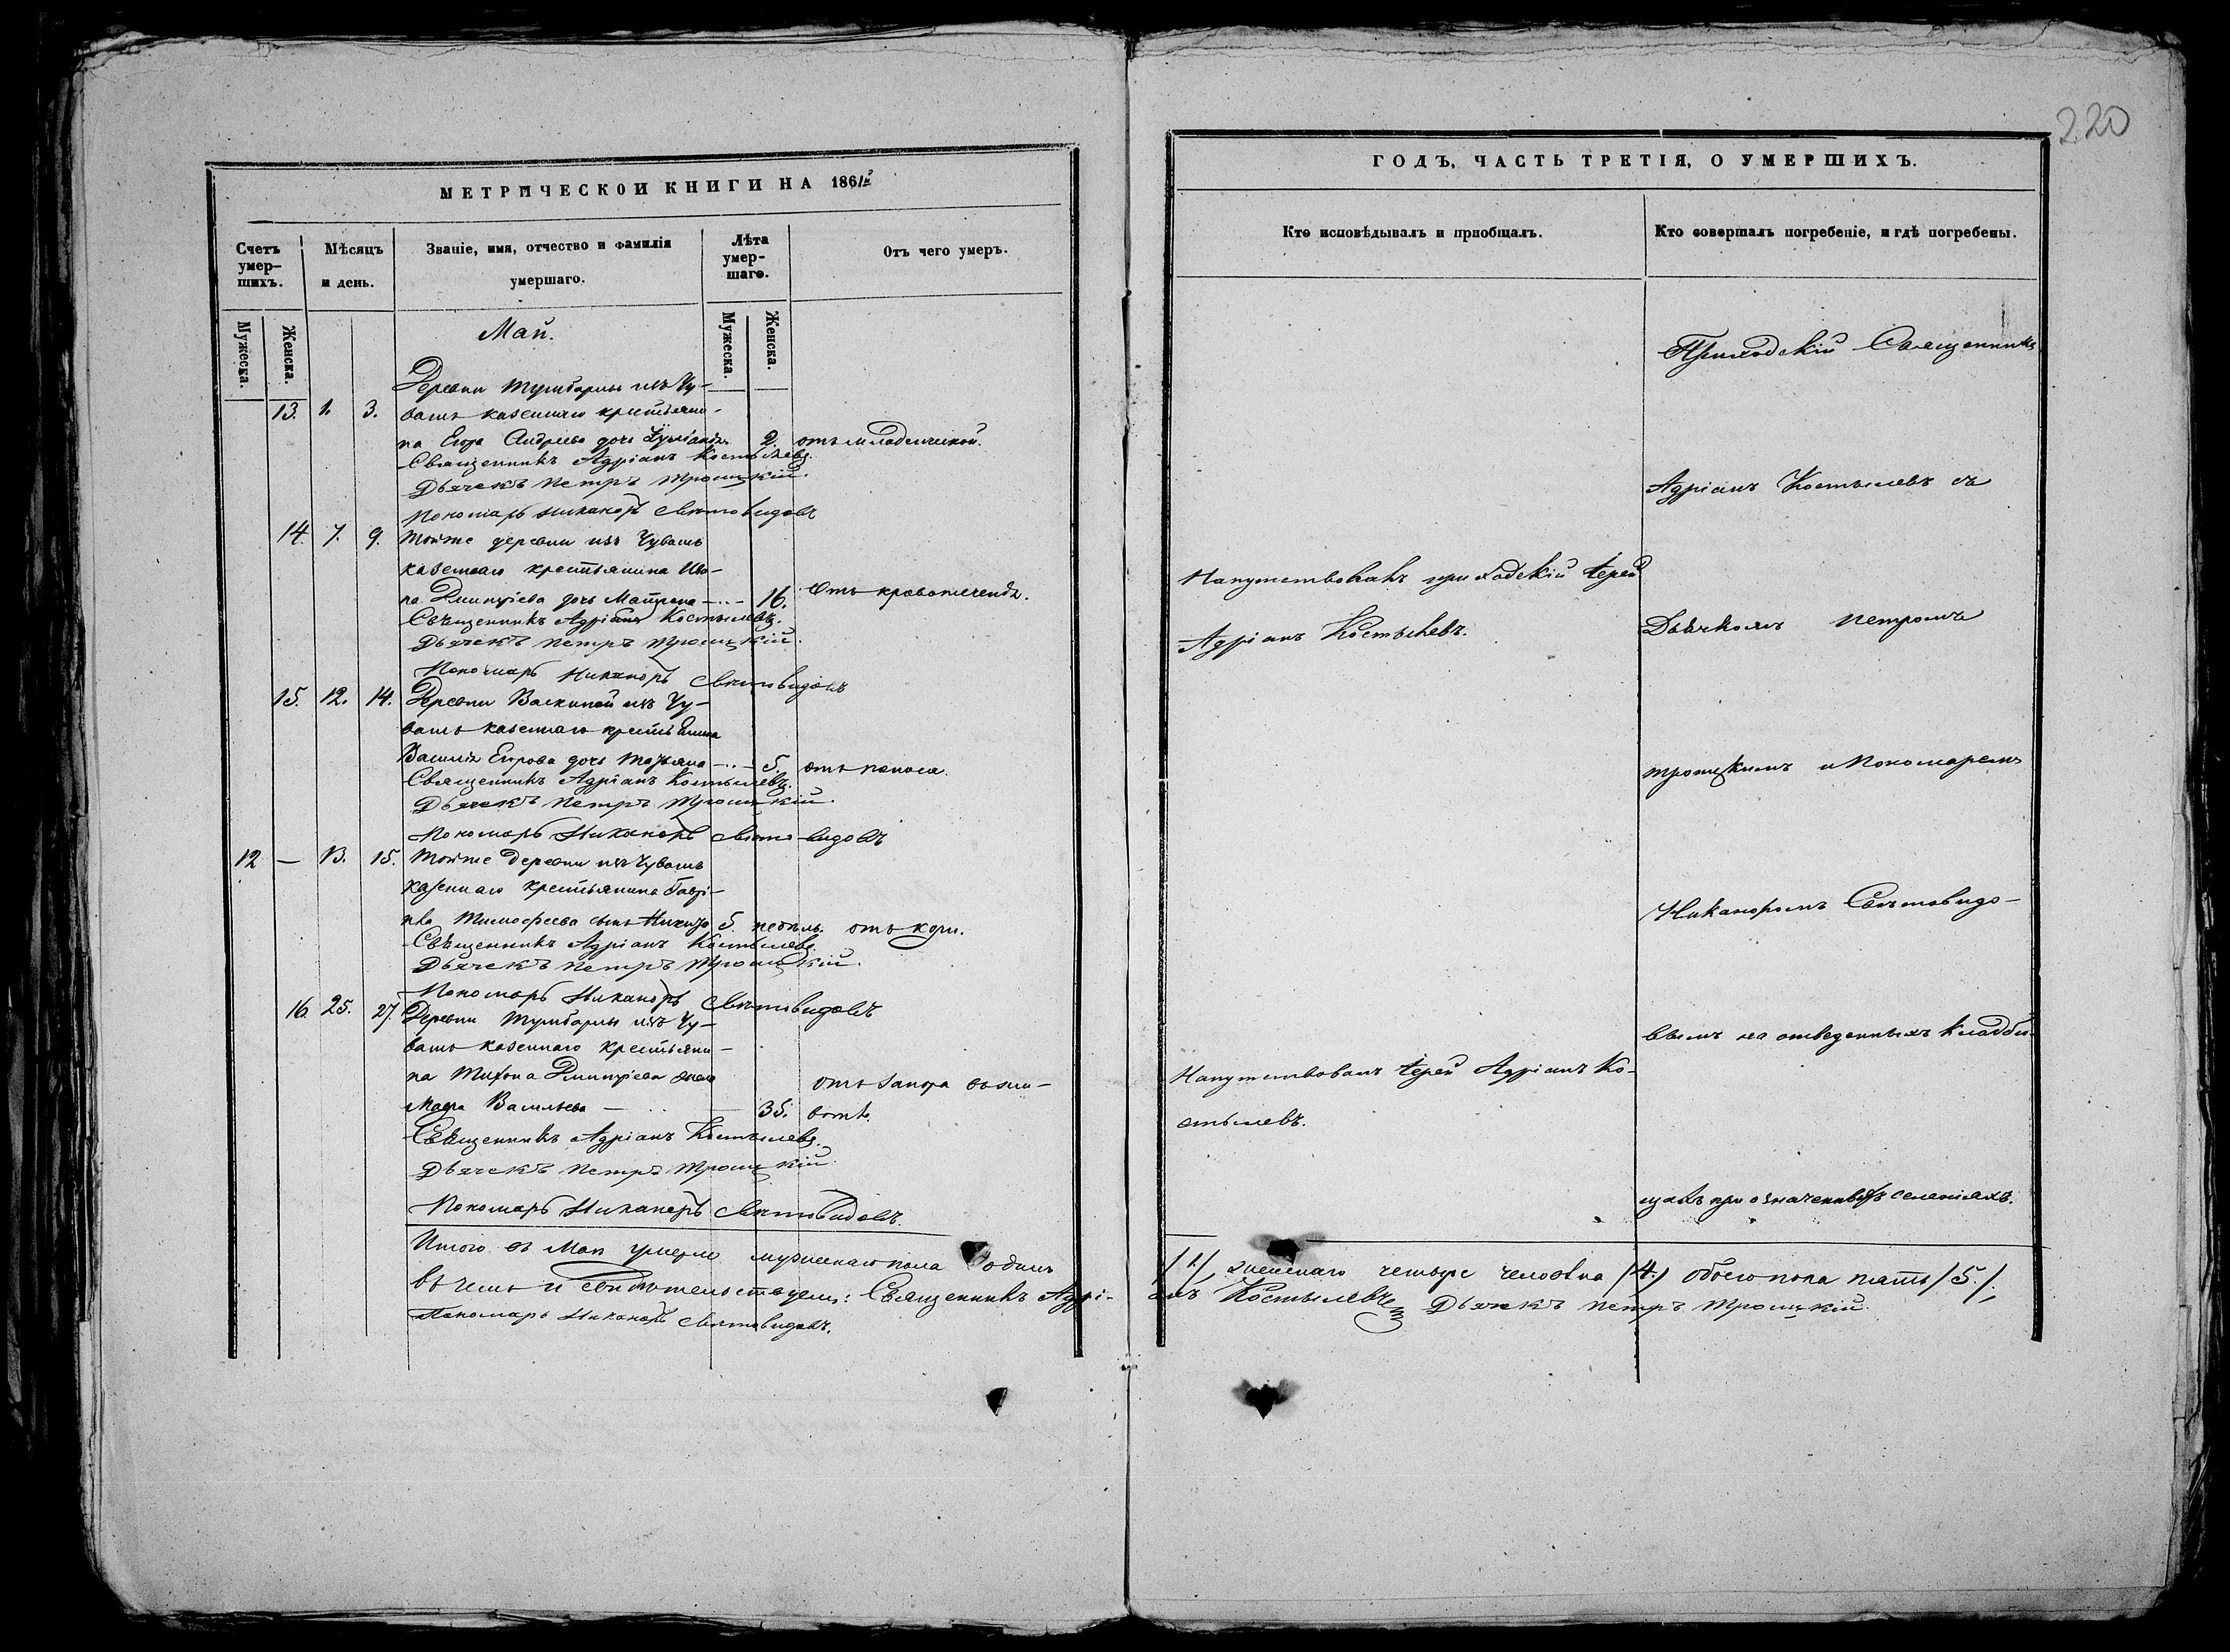 220
МЕТРИЧЕСКОЙ КНИГИ НА 1861й
Счетъ умер-шихъ.
Мѣсяцъ и день.
Званіе, имя, отчество и фамилія умершаго.
Лѣта умер-шаго.
Отъ чего умеръ.
Мужеска.
Женска.
Мужеска.
Женска.
Май.
Деревни Тумбарлы изъ Чу-
13. 1. 3. вашъ казеннаго крестьяни-
на Егора Андреева дочь 2. отъ младенческой.
Священникъ Адріанъ Костылевъ.
Дьячекъ Петръ Троицкій.
Пономарь Никаноръ Святовидовъ
14. 7. 9. Тойже деревни изъ Чувашъ
казеннаго крестьянина Ива-
на Дмитріева дочь Матрена 16. Отъ кровотеченія.
Священникъ Адріанъ Костылевъ.
Дьячекъ Петръ Троицкій.
Пономарь Никаноръ Святовидовъ
15. 12. 14. Деревни Васкиной изъ Чу-
вашъ казеннаго крестьянина
Василія Егорова дочь Татьяна 5. отъ поноса.
Священникъ Адріанъ Костылевъ.
Дьячекъ Петръ Троицкій.
Пономарь Никаноръ Святовидовъ
12 — 13. 15. Тойже деревни изъ Чувашъ
казеннаго крестьянина Гаврі-
ила Тимофеева сынъ 5. недѣль. отъ кори.
Священникъ Адріанъ Костылевъ.
Дьячекъ Петръ Троицкій.
Пономарь Никаноръ Святовидовъ
16. 25. 27. Деревни Тумбарлы изъ Чу-
вашъ казеннаго крестьяни-
на Тихона Дмитріева жена отъ запора въ жи-
Мавра Васильева — 35. вотѣ.
Священникъ Адріанъ Костылевъ.
Дьячекъ Петръ Троицкій.
Пономарь Никаноръ Святовидовъ.
Итого въ Маи умерло мужескаго пола одинъ
въ чемъ и свидѣтельствуемъ: Священникъ Адрі-
Пономарь Никаноръ Святовидовъ.
ГОДЪ, ЧАСТЬ ТРЕТІЯ, О УМЕРШИХЪ.
Кто исповѣдывалъ и пріобщалъ.
Кто совершалъ погребеніе, и гдѣ погребены.
Приходскій Священникъ
Адріанъ Костылевъ съ
Напутствовалъ приходскій Іерей
Адріанъ Костылевъ.
Дьячкомъ Петромъ
Троицкимъ и Пономаремъ
Никаноромъ Святовидо-
вымъ на отведенныхъ кладби-
Напутствовалъ Іерей Адріанъ Ко-
стылевъ.
щахъ при означенныхъ селеніяхъ.
/1/, женскаго четыре человѣка /4./ обоего пола пять /5./,
анъ Костылевъ Дьячекъ Петръ Троицкій.